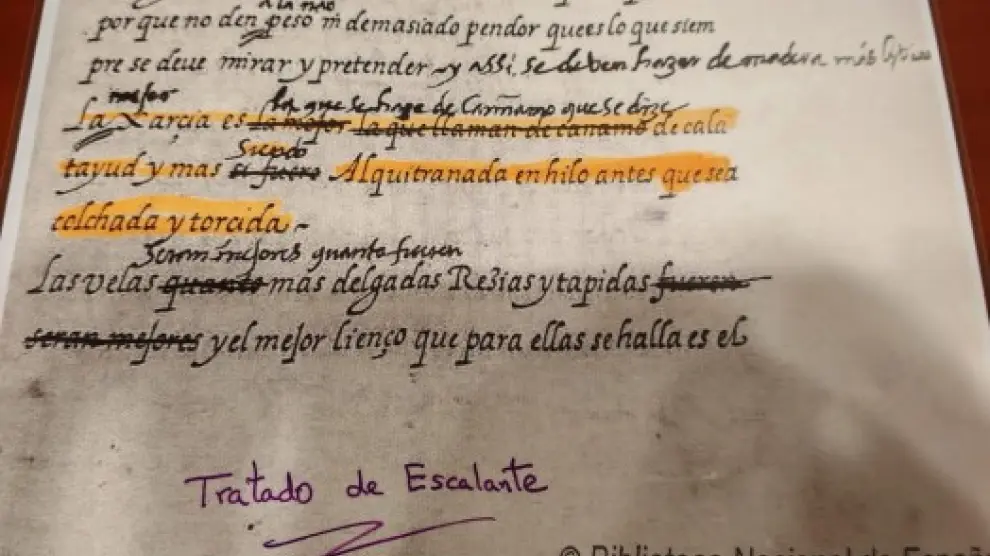 A LA nao
por que no den peso ni demasiado pendor quees lo que siem
pre se deue mirar y pretender y assi se deben hazer de madera más
mejor la que se haze de Cañamo que se dize
La Xarçia es la mejor la que llaman de cañamo de cala
siendo
tayud y mas si fuere Alquitranada en hilo antes que sea
colchada y torcida
Seran mejores quanto fueren
Las velas quanto más delgadas Rezias y tapidas fueren
seran mejores y el mejor lienço que para ellas se halla es el
Tratado de Escalante
© Biblioteca Nacional de España